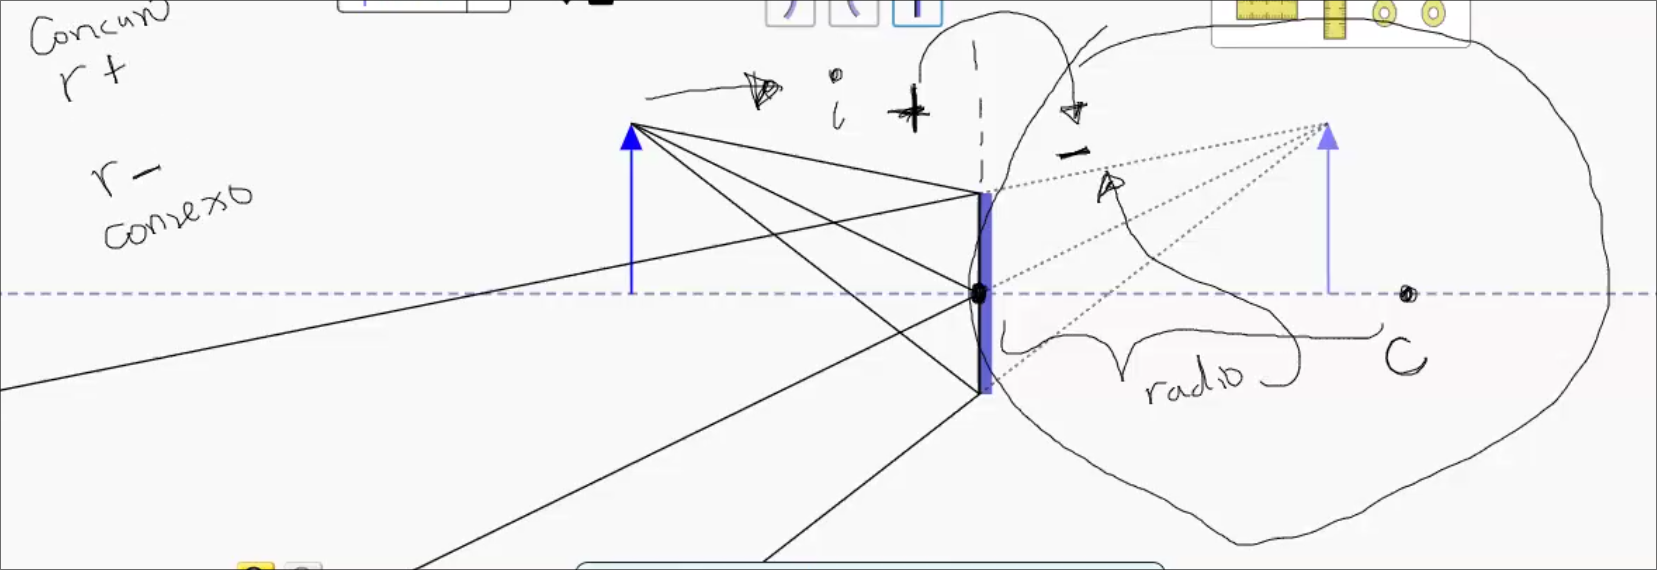 Concavo
r +
i +
-
r -
convexo
radio
C